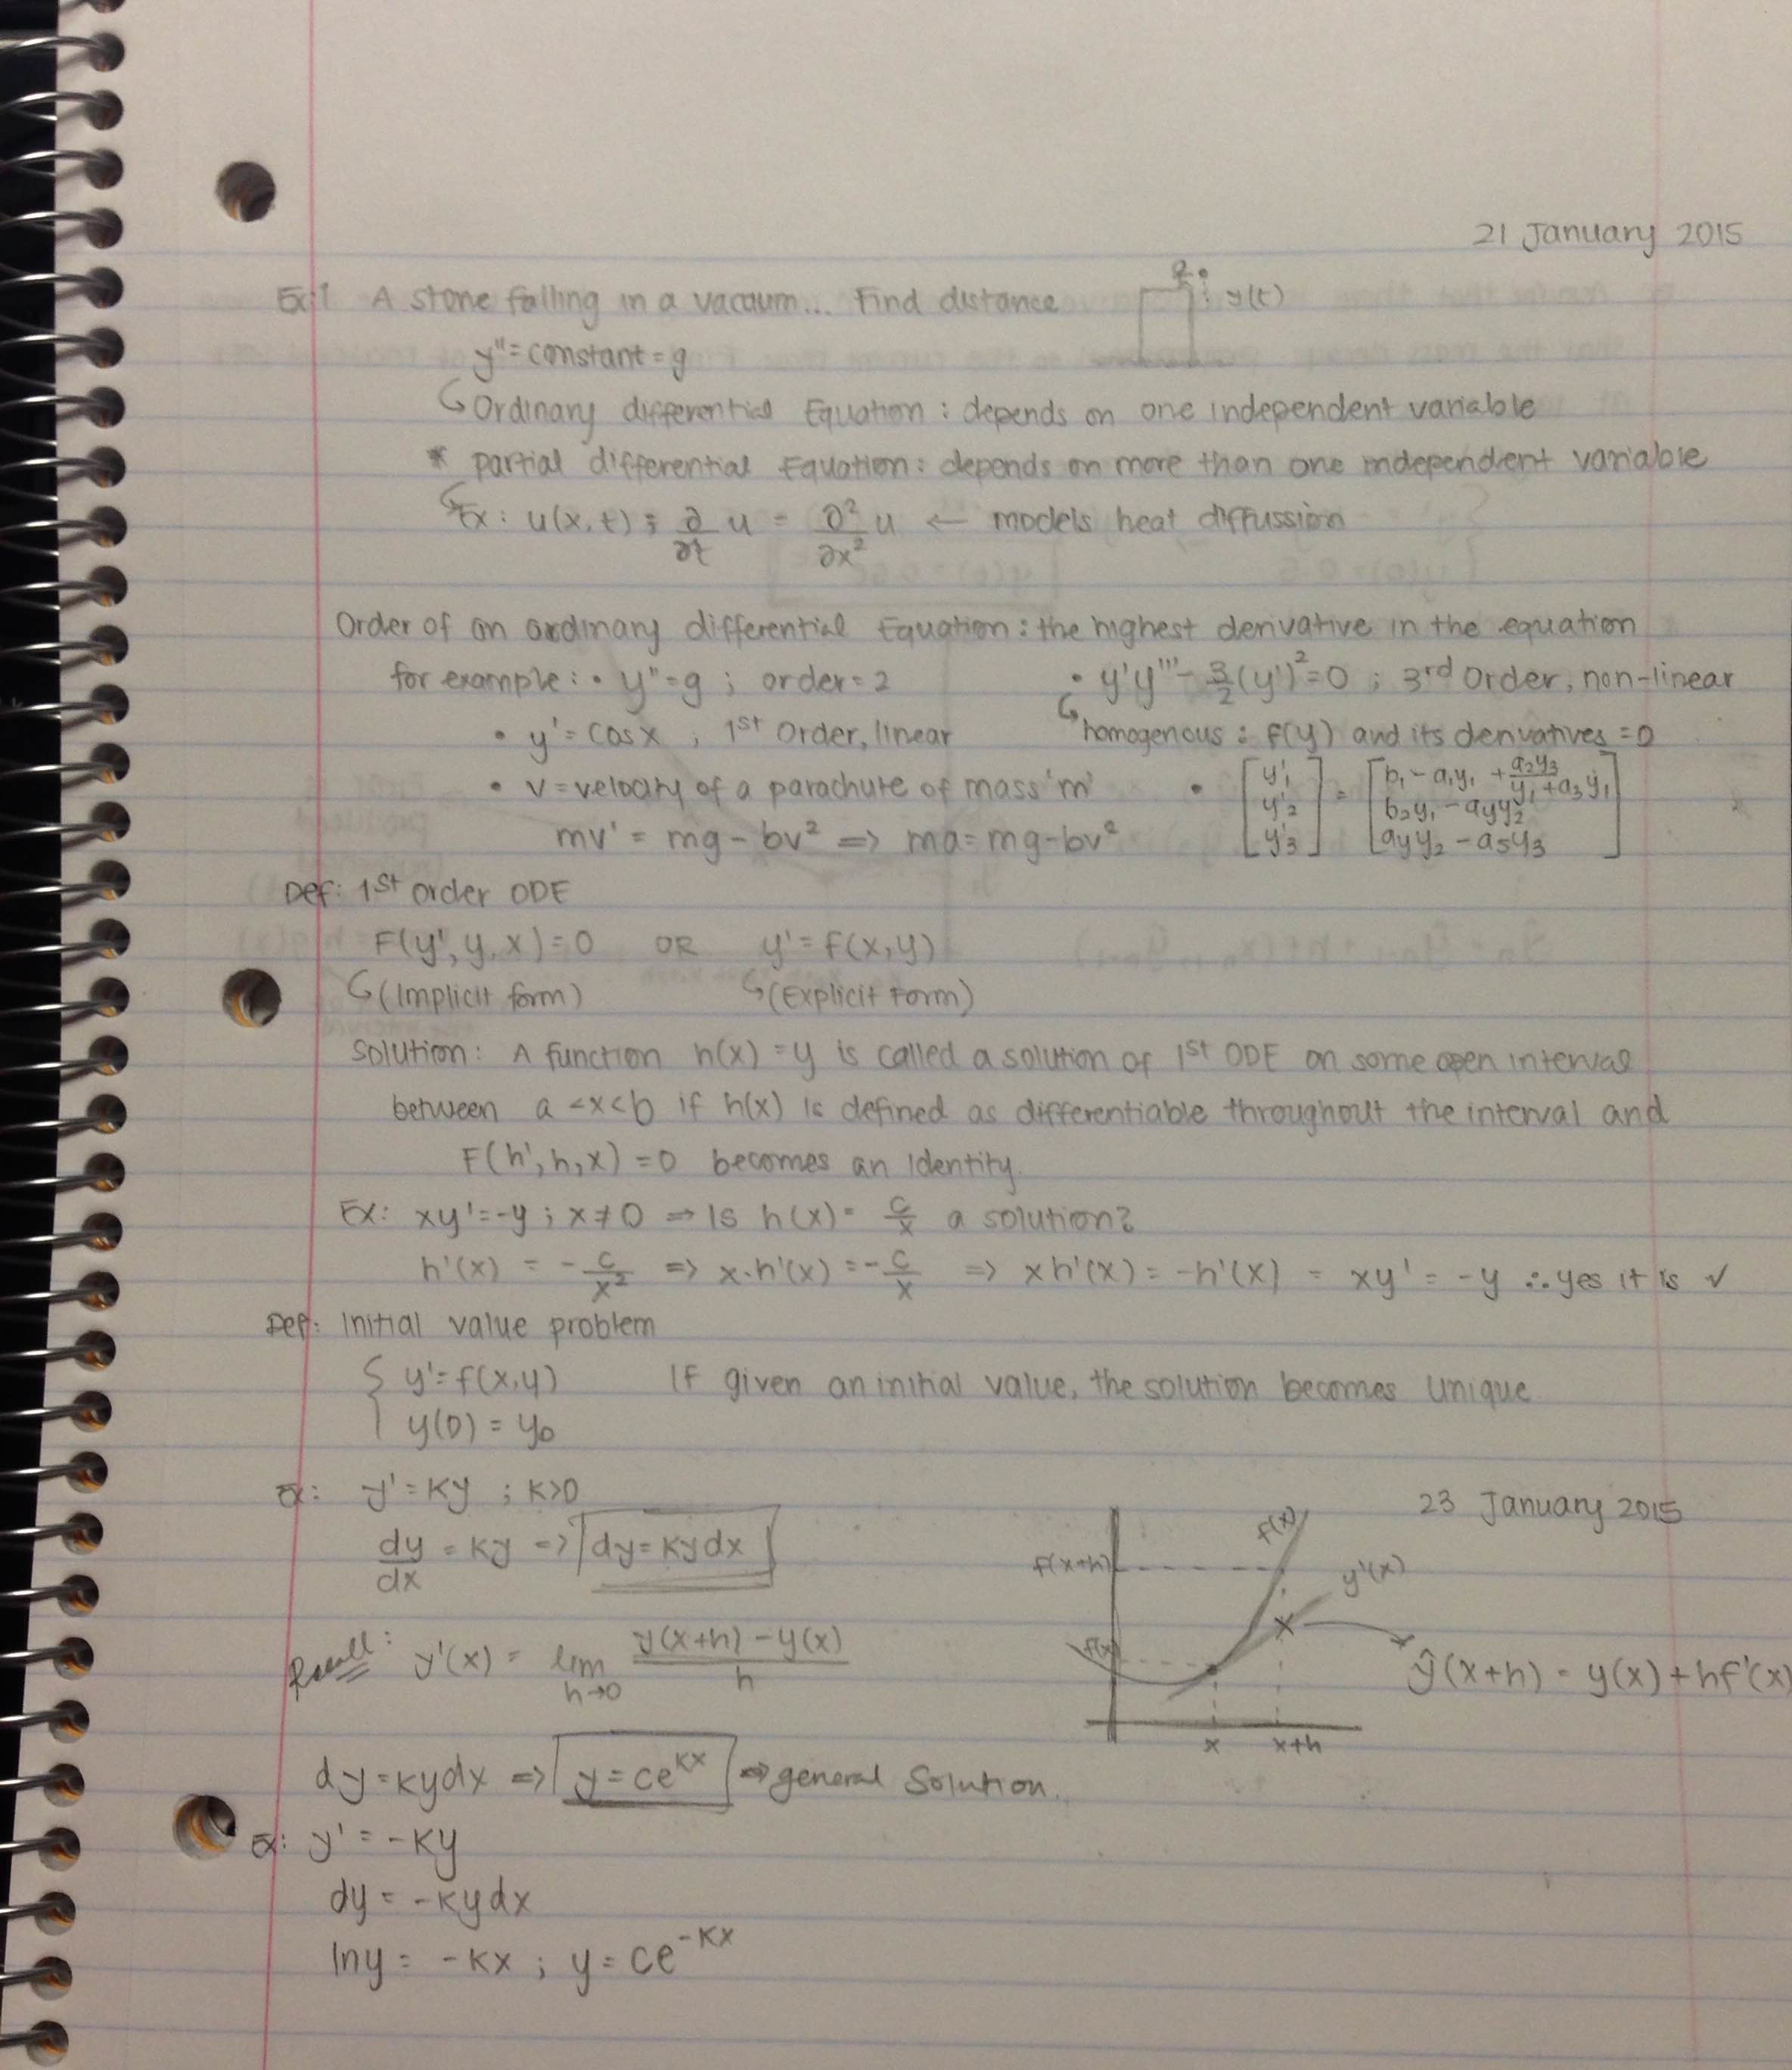 21 January 2015
Ex:1 A stone falling in a vacuum... Find distance y(t)
y''=constant=g
↳Ordinary differential Equation: depends on one independent variable
* Partial differential Equation: depends on more than one independent variable
↳Ex: u(x,t); ∂/∂t u = ∂²/∂x² u ← models heat diffussion
Order of an ordinary differential Equation: the highest derivative in the equation
for example: • y''=g ; order=2 • y'y'''-3/2(y')²=0 ; 3rd Order, non-linear
• y'=cosx , 1st Order, linear ↳homogenous: f(y) and its derivatives =0
• v=velocity of a parachute of mass 'm' • [y'1 y'2 y'3] = [b1-a1y1+a2y3/y1+a3y1 b2y1-ayy2 ayy2-a5y3]
mv' = mg-bv² => ma=mg-bv²
Def: 1st order ODE
F(y',y,x)=0 OR y'=f(x,y)
↳(Implicit form) ↳(Explicit Form)
Solution: A function h(x)=y is called a solution of 1st ODE on some open interval
between a<x<b if h(x) is defined as differentiable throughout the interval and
F(h',h,x)=0 becomes an identity.
Ex: xy'=-y; x≠0 => Is h(x)= c/x a solution?
h'(x) = -c/x² => x·h'(x) = -c/x => xh'(x) = -h'(x) = xy' = -y ∴ yes it is ✓
Def: Initial value problem
{ y'=f(x,y) If given an initial value, the solution becomes unique
y(0)=y0
Ex: y'=ky ; k>0
23 January 2015
dy/dx = ky => dy=kydx
Recall: y'(x) = lim h→0 y(x+h)-y(x)/h
f(x)
f(x+h)
y'(x)
f(x)
ŷ(x+h) = y(x)+hf'(x)
x x+h
dy=kydx => y=ce^kx => general Solution.
Ex: y'=-ky
dy=-kydx
lny=-kx ; y=ce^-kx